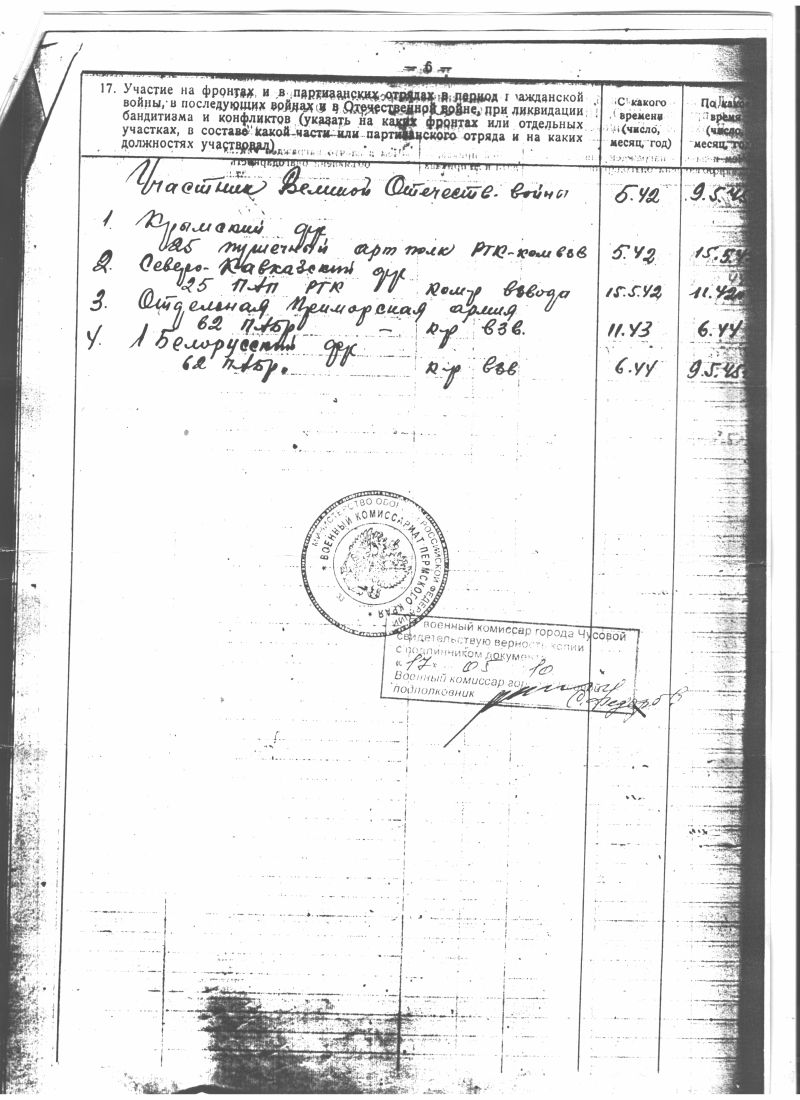 — 6 —
17. Участие на фронтах и в партизанских отрядах в период гражданской
войны, в последующих войнах и в Отечественной войне, при ликвидации
бандитизма и конфликтов (указать на каких фронтах или отдельных
участках, в составе какой части или партизанского отряда и на каких
должностях участвовал)
С какого
времени
(число,
месяц, год)
По како
время
(число,
месяц, го
Участник Великой Отечеств. войны 5.42 9.5.45
1. Крымский фр
25 пушечный арт полк РТК-комвзв 5.42 15.5.4
2. Северо-Кавказский фр
25 ПАП РТК ком-р взвода 15.5.42 11.42
3. Отдельная Приморская армия
62 ПАБр – к-р взв. 11.43 6.44
4. 1 Белорусский фр
62 ПАбр. к-р взв 6.44 9.5.45
МИНИСТЕРСТВО ОБОР РОССИЙСКОЙ ФЕДЕРАЦИИ
* ВОЕННЫЙ КОМИССАРИАТ ПЕРМСКОГО КРАЯ *
военный комиссар города Чусовой
свидетельствую верность копии
с подлинником документа
« 17 » 05 10
Военный комиссар гор
подполковник С.Федоров